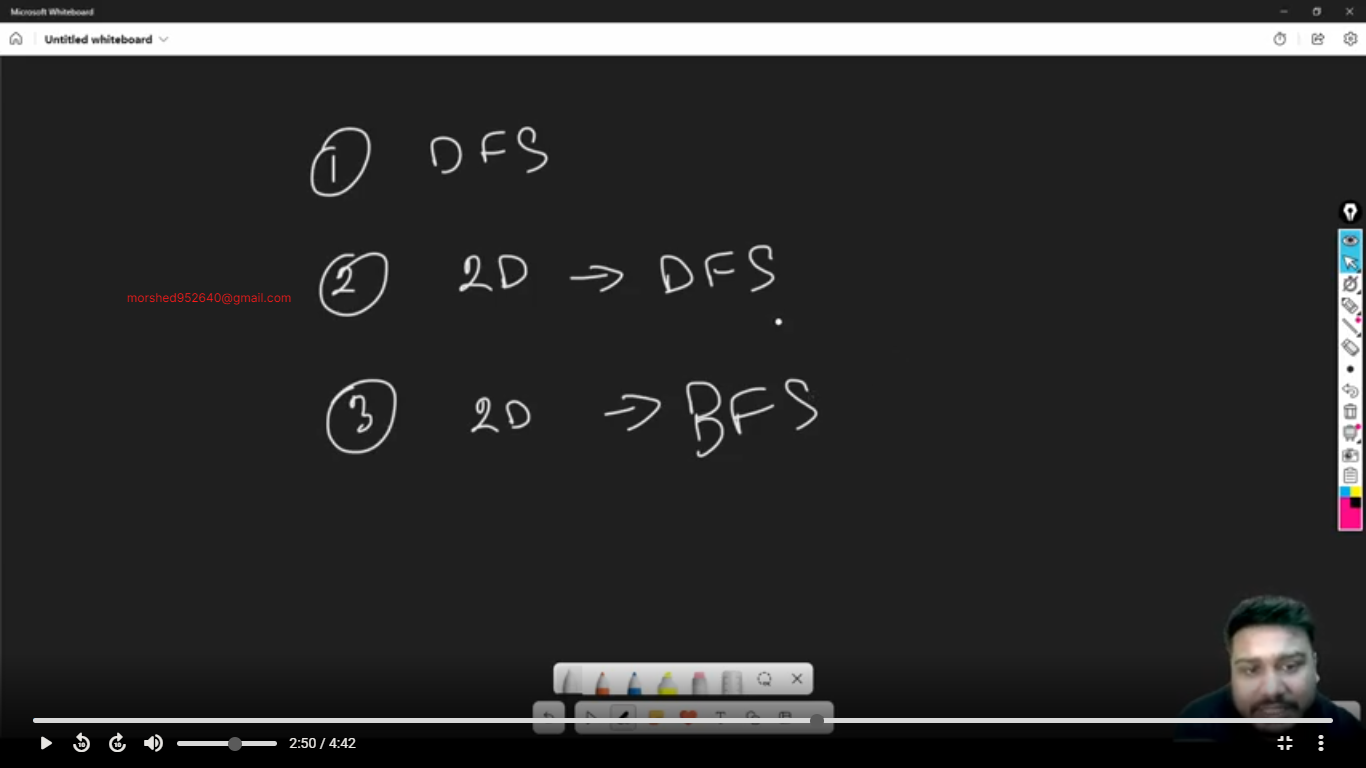 Microsoft Whiteboard
Untitled whiteboard
1 DFS
2 2D → DFS
morshed952640@gmail.com
3 2D → BFS
2:50 / 4:42